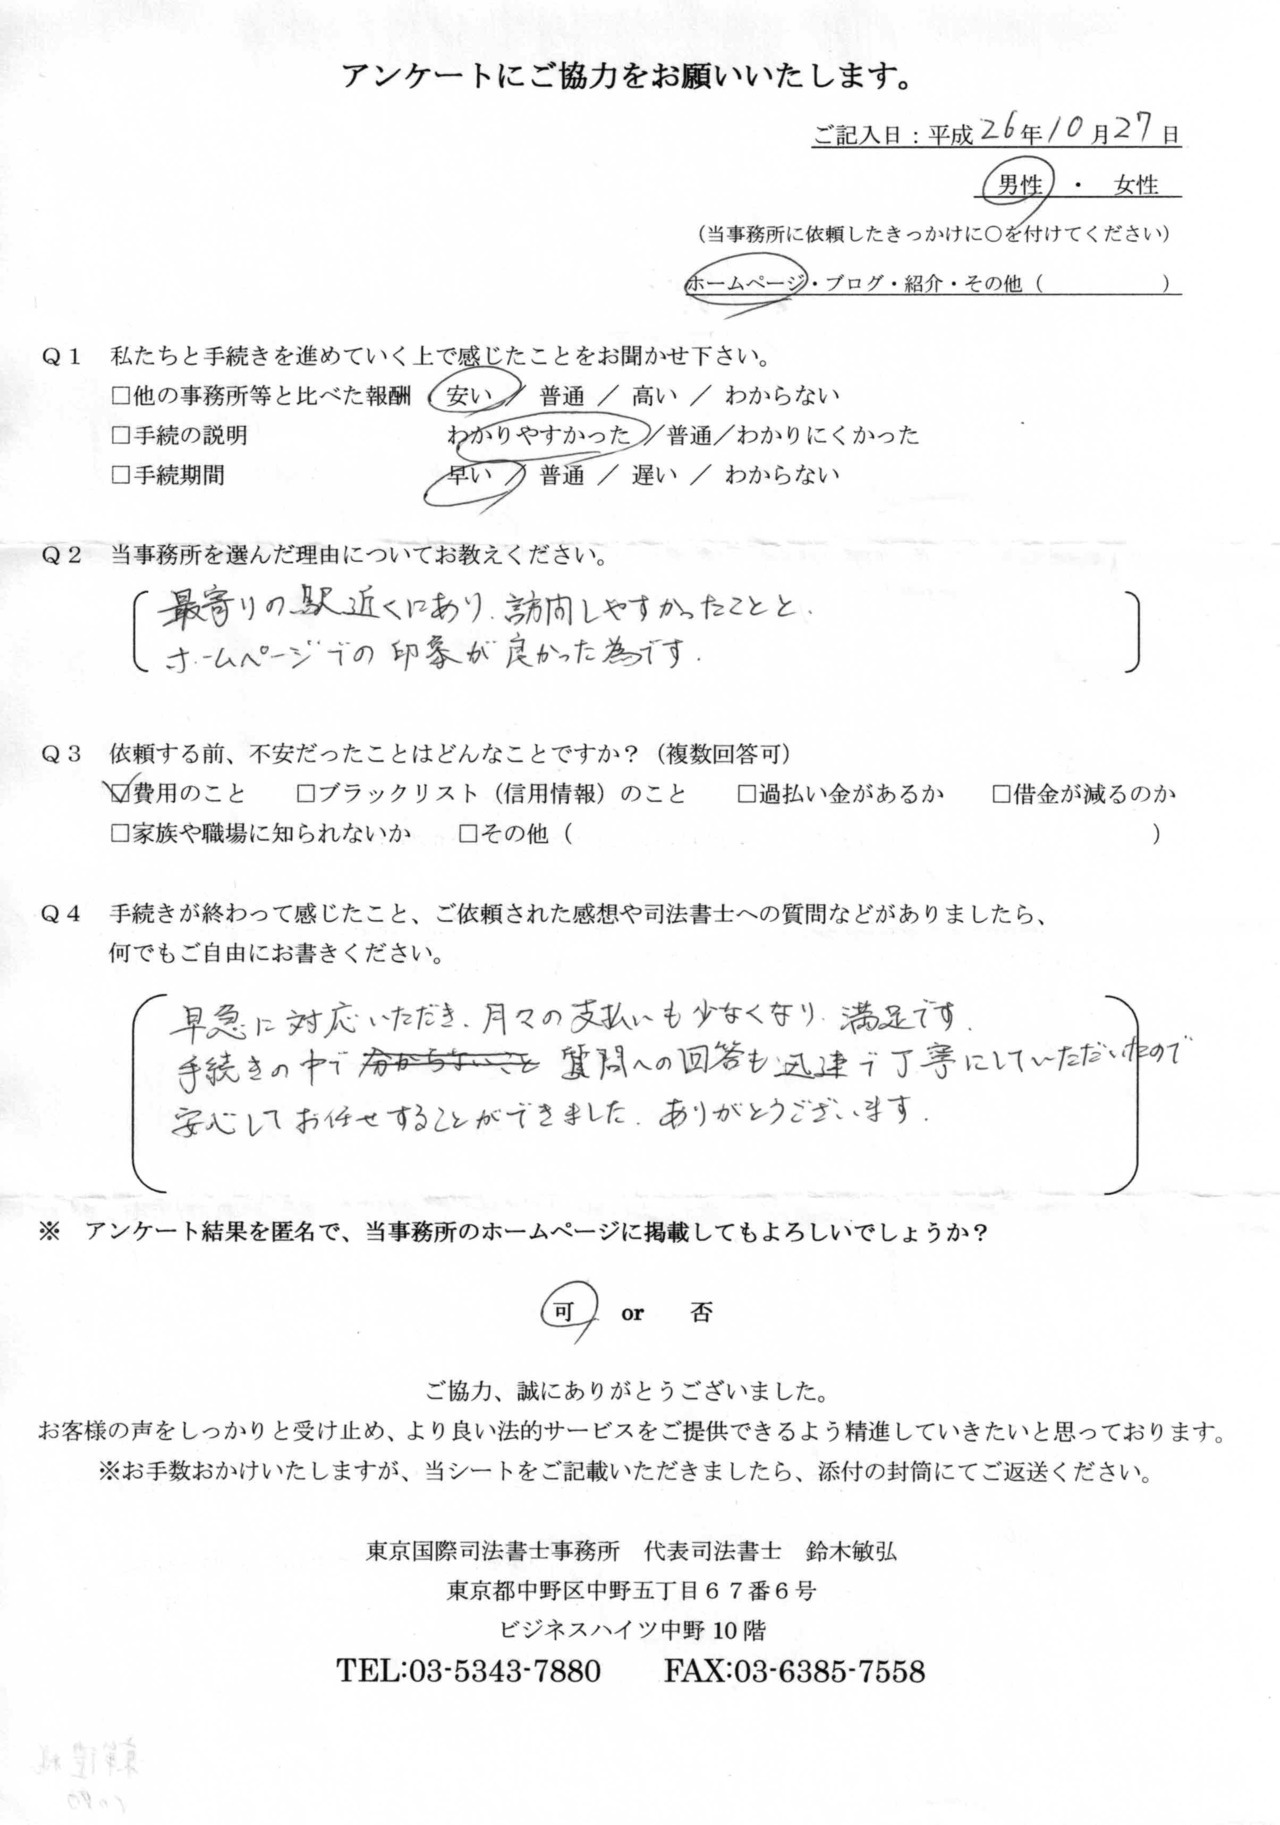 アンケートにご協力をお願いいたします。
ご記入日：平成26年10月27日
男性 ・ 女性
（当事務所に依頼したきっかけに○を付けてください）
ホームページ・ブログ・紹介・その他（　　　　　　）
Q1 私たちと手続きを進めていく上で感じたことをお聞かせ下さい。
□他の事務所等と比べた報酬 安い ／ 普通 ／ 高い ／ わからない
□手続の説明 わかりやすかった ／普通／わかりにくかった
□手続期間 早い ／ 普通 ／ 遅い ／ わからない
Q2 当事務所を選んだ理由についてお教えください。
最寄りの駅近くにあり、訪問しやすかったことと、
ホームページでの印象が良かった為です。
Q3 依頼する前、不安だったことはどんなことですか？（複数回答可）
☑費用のこと □ブラックリスト（信用情報）のこと □過払い金があるか □借金が減るのか
□家族や職場に知られないか □その他（　　　　　　）
Q4 手続きが終わって感じたこと、ご依頼された感想や司法書士への質問などがありましたら、
何でもご自由にお書きください。
早急に対応いただき、月々の支払いも少なくなり、満足です。
手続きの中で 分からないこと 質問への回答も迅速で丁寧にしていただいたので
安心してお任せすることができました。ありがとうございます。
※ アンケート結果を匿名で、当事務所のホームページに掲載してもよろしいでしょうか？
可 or 否
ご協力、誠にありがとうございました。
お客様の声をしっかりと受け止め、より良い法的サービスをご提供できるよう精進していきたいと思っております。
※お手数おかけいたしますが、当シートをご記載いただきましたら、添付の封筒にてご返送ください。
東京国際司法書士事務所 代表司法書士 鈴木敏弘
東京都中野区中野五丁目67番6号
ビジネスハイツ中野10階
TEL:03-5343-7880 FAX:03-6385-7558